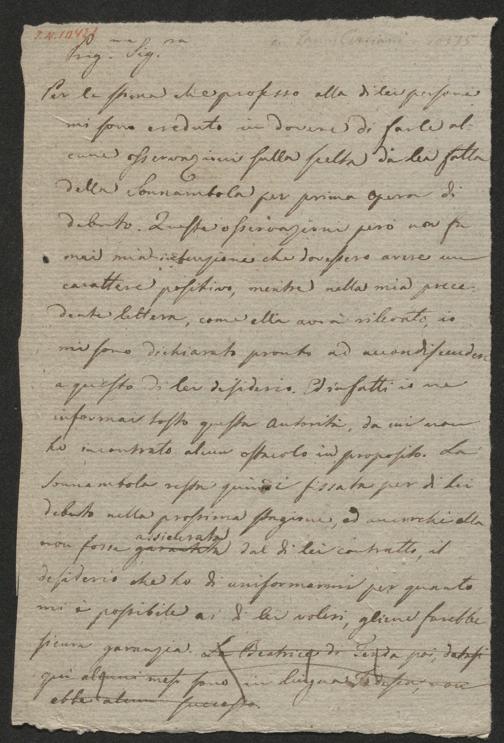 I.N. 10431
Preg.ma Sig.ra
Per la stima che professo alla di lei persona
mi sono creduto in dovere di farle al-
cune osservazioni sulla scelta da lei fatta
della Sonnambula per prima opera di
debuto. Queste osservazioni però non fu
mai mia intenzione che dovessero avere un
carattere positivo, mentre nella mia prece-
dente lettera, come ella avrà rilevato, io
mi sono dichiarato pronto ad accondiscendere
a questo di lei desiderio. Ed infatti io ne
informai tosto questa Autorità, da cui non
ho incontrato alcun ostacolo in proposito. La
Sonnambola resta quindi fissata per di lei
debuto nella prossima stagione, ed ancorchè ella
non fosse garantita assicurata dal di lei contratto, il
desiderio che ho di uniformarmi per quanto
mi è possibile ai di lei voleri, gliene farebbe
sicura garanzia. La Beatrice di Tenda poi, datasi
qui alcuni mesi sono in lingua Tedesca, non
ebbe alcun successo.